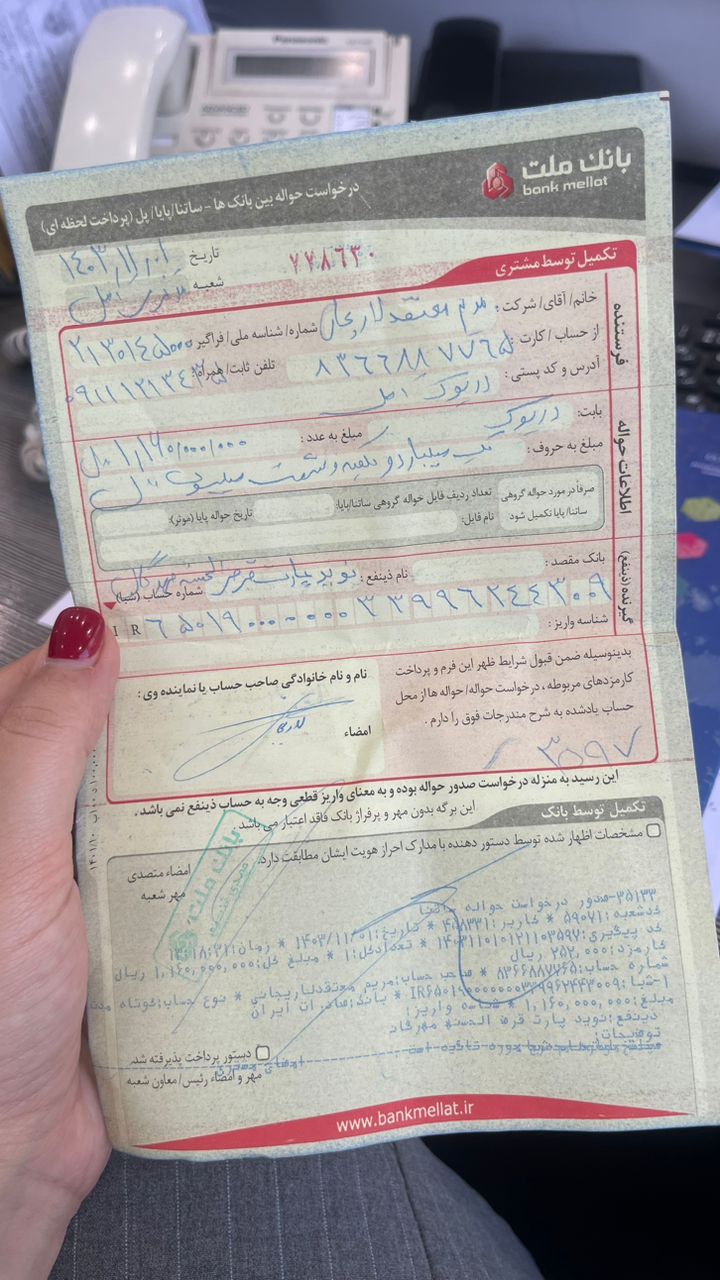 Panasonic
بانک ملت
bank mellat
درخواست حواله بین بانک ها - ساتنا/پایا/پل (پرداخت لحظه ای)
تاریخ ۱۴۰۳/۱۱/۰۱
۷۷۸۶۳۰
شعبه مرکزی آمل
تکمیل توسط مشتری
فرستنده
خانم/ آقای/ شرکت: مریم معتقد لاریجانی شماره/ شناسه ملی/ فراگیر: ۲۱۳۰۱۴۵۰۰۰
از حساب / کارت: ۸۳۶۶۸۸۷۷۶۵ تلفن ثابت/ همراه: ۰۹۱۱۱۲۱۳۴۳۵
آدرس و کد پستی: آمل
اطلاعات حواله
بابت: مبلغ به عدد: ۱,۱۶۰,۰۰۰,۰۰۰ ریال
مبلغ به حروف: یک میلیارد و یکصد و شصت میلیون ریال
صرفاً در مورد حواله گروهی ساتنا/ پایا تکمیل شود
تعداد ردیف فایل حواله گروهی ساتنا/پایا: تاریخ حواله پایا (موثر):
نام فایل:
گیرنده (ذینفع)
بانک مقصد: نام ذینفع: نوید پارت قرض الحسنه مهرگان
شماره حساب (شبا)
IR ۶۵۰۱۹۰۰۰۰۰۰۰۳۳۹۹۶۲۴۴۳۰۰۹
شناسه واریز:
بدینوسیله ضمن قبول شرایط ظهر این فرم و پرداخت
کارمزدهای مربوطه، درخواست حواله/ حواله ها از محل
حساب یادشده به شرح مندرجات فوق را دارم.
نام و نام خانوادگی صاحب حساب یا نماینده وی:
امضاء
۳۵۹۷
این رسید به منزله درخواست صدور حواله بوده و به معنای واریز قطعی وجه به حساب ذینفع نمی باشد.
این برگه بدون مهر و پرفراژ بانک فاقد اعتبار می باشد.
تکمیل توسط بانک
مشخصات اظهار شده توسط دستور دهنده با مدارک احراز هویت ایشان مطابقت دارد.
امضاء متصدی
مهر شعبه
بانک ملت
۳۵۱۳۳-صدور درخواست حواله ساتنا
کدشعبه:۵۹۰۷۱ * کاربر:۴۰۸۳۳۱ * تاریخ:۱۴۰۳/۱۱/۰۱ * زمان:۱۳:۱۸:۳۱
کد پیگیری:۱۴۰۳۱۱۰۱۰۱۲۱۱۰۳۵۹۷ * تعدادکل:۱ * مبلغ کل:۱,۱۶۰,۰۰۰,۰۰۰ ریال
کارمزد:۲۵۲,۰۰۰ ریال
شماره حساب:۸۳۶۶۸۸۷۷۶۵ * صاحب حساب:مریم معتقدلاریجانی * نوع حساب:کوتاه مدت
۱-شبا:IR۶۵۰۱۹۰۰۰۰۰۰۰۳۳۹۹۶۲۴۴۳۰۰۹ * بانک:صادرات ایران
مبلغ:۱,۱۶۰,۰۰۰,۰۰۰ * شناسه واریز:
ذینفع:نوید پارت قرض الحسنه مهرگان
توضیحات:
دستور پرداخت پذیرفته شد.
مهر و امضاء رئیس/ معاون شعبه
www.bankmellat.ir